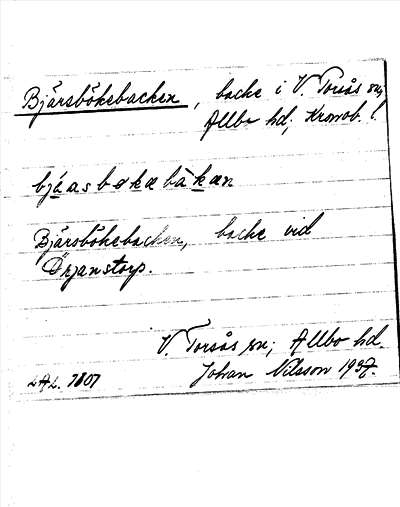 Bjärsbökebacken, backe i V. Torsås sn,
Allbo hd, Kronob. l.
bjäasbøkabàkan
Bjärsbökebacken, backe vid
Örjanstorp.
V. Torsås sn; Allbo hd.
LAL. 7807
Johan Nilsson 1937.